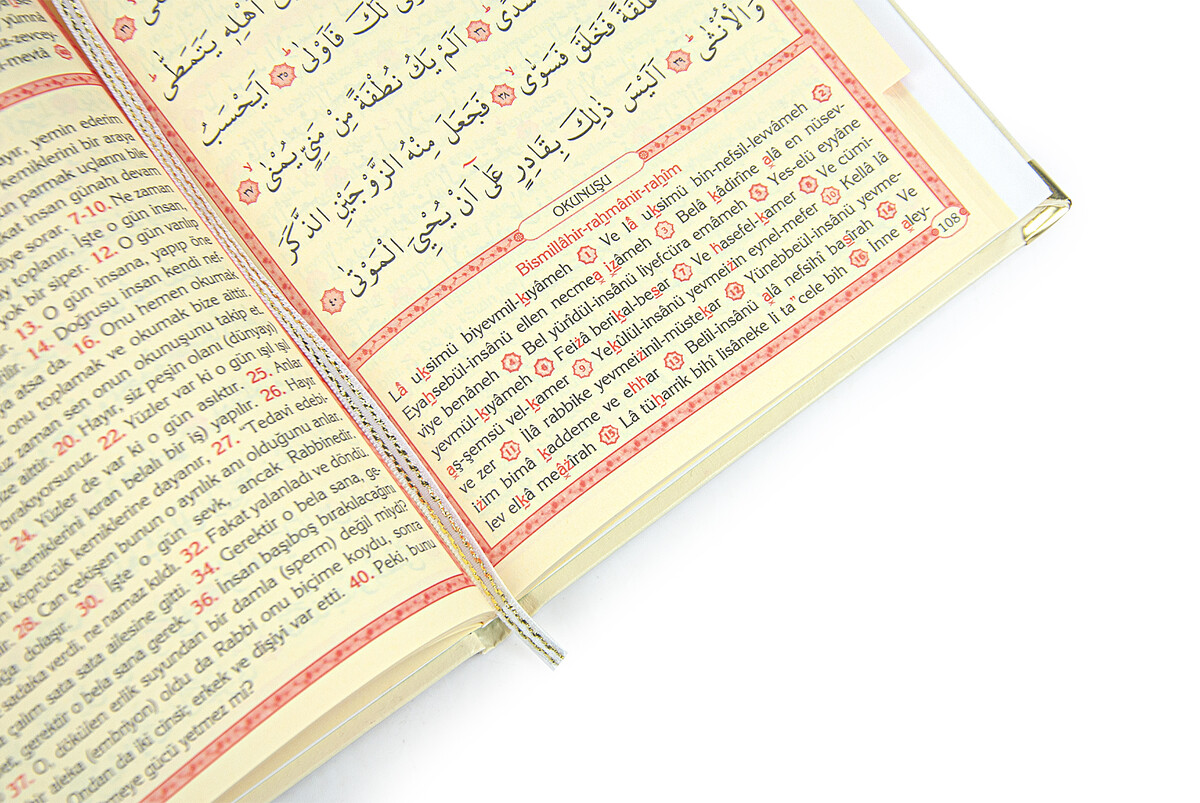 yümnâ
z-zevcey-
k-mevtâ
ayır, yemin ederim
kemiklerini bir araya
un parmak uçlarını bile
akat insan günahı devam
diye sorar. 7-10. Ne zaman
toplanır, İşte o gün insan,
yok bir siper. 12. O gün varılıp
13. O gün insana, yapıp öne
14. Doğrusu insan kendi nef-
ya atsa da. 16. Onu hemen okumak
onu toplamak ve okumak bize aittir.
uz zaman sen onun okunuşunu takip et.
ize aittir. 20. Hayır, siz peşin olanı (dünyayı)
bırakıyorsunuz. 22. Yüzler var ki o gün ışıl ışıl
24. Yüzler de var ki o gün asıktır. 25. Anlar
bel kemiklerini kıran belalı bir iş) yapılır. 26. Hayır
n köprücük kemiklerine dayanır, 27. "Tedavi edebi-
28. Can çekişen bunun o ayrılık anı olduğunu anlar.
ağa dolaşır. 30. İşte o gün sevk, ancak Rabbinedir.
sadaka verdi, ne namaz kıldı. 32. Fakat yalanladı ve döndü.
a çalım sata sata ailesine gitti. 34. Gerektir o bela sana, ge-
er, gerektir o bela sana gerek. 36. İnsan başıboş bırakılacağını
37. O, dökülen erlik suyundan bir damla (sperm) değil miydi?
bir aleka (embriyon) oldu da Rabbi onu biçime koydu, sonra
Ondan da iki cinsi; erkek ve dişiyi var etti. 40. Peki, bunu
meye gücü yetmez mi?
﴿٣١﴾ اَهْلِهٖ يَتَمَطّٰىۜ
لَكَ فَاَوْلٰىۜ ﴿٣٥﴾ اَيَحْسَبُ
سُدًىۜ ﴿٣٦﴾ اَلَمْ يَكُ نُطْفَةً مِنْ مَنِيٍّ يُمْنٰىۙ ﴿٣٧﴾
عَلَقَةً فَخَلَقَ فَسَوّٰىۙ ﴿٣٨﴾ فَجَعَلَ مِنْهُ الزَّوْجَيْنِ الذَّكَرَ
وَالْاُنْثٰىۜ ﴿٣٩﴾ اَلَيْسَ ذٰلِكَ بِقَادِرٍ عَلٰٓى اَنْ يُحْيِيَ الْمَوْتٰى ﴿٤٠﴾
OKUNUŞU
Bismillâhir-rahmânir-rahîm
Lâ uksimü biyevmil-kıyâmeh 1 Ve lâ uksimü bin-nefsil-levvâmeh 2
Eyahsebül-insânü ellen necmea izâmeh 3 Belâ kâdirîne alâ en nüsev-
viye benâneh 4 Bel yürîdül-insânü liyefcüra emâmeh 5 Yes-elü eyyâne
yevmül-kıyâmeh 6 Feizâ berikal-besar 7 Ve hasefel-kamer 8 Ve cümi-
aş-şemsü vel-kamer 9 Yekûlül-insânü yevmeizin eynel-mefer 10 Kellâ lâ
ve zer 11 İlâ rabbike yevmeizinil-müstekar 12 Yünebbeül-insânü yevme-
izim bimâ kaddeme ve ehhar 13 Belil-insânü alâ nefsihî basîrah 14 Ve
lev elkâ meâzîrah 15 Lâ tüharrik bihî lisâneke li ta" cele bih 16 İnne aley-
108